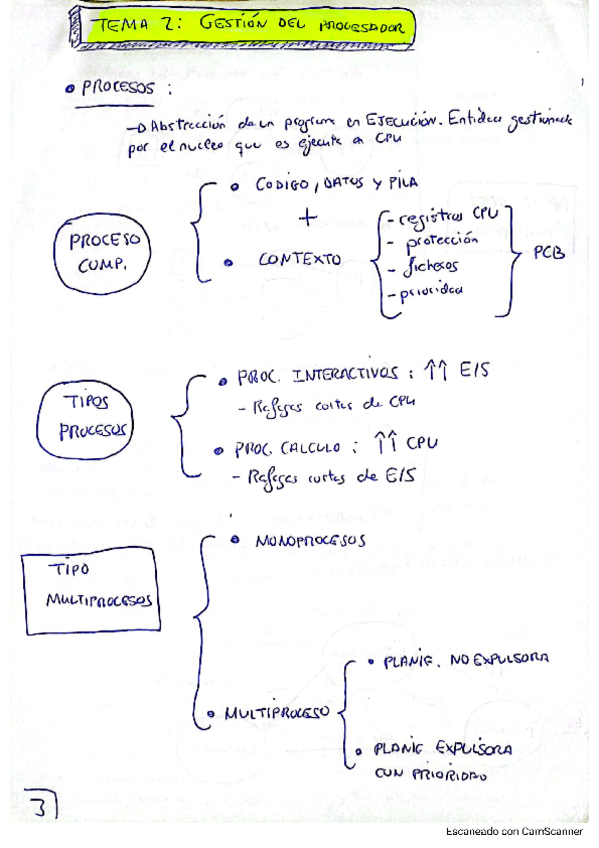 TEMA 2: GESTIÓN DEL PROCESADOR
• PROCESOS :
→ Abstracción de un programa en EJECUCIÓN. Entidad gestionada
por el nucleo que es ejecuta en CPU
PROCESO
COMP.
• CODIGO, DATOS Y PILA
+
• CONTEXTO
- registros CPU
- protección
- ficheros
- prioridad
PCB
TIPOS
PROCESOS
• PROC. INTERACTIVOS : ↑↑ E/S
- Rafagas cortas de CPU
• PROC. CALCULO : ↑↑ CPU
- Rafagas cortas de E/S
TIPO
MULTIPROCESOS
• MONOPROCESOS
• MULTIPROCESO
• PLANIF. NO EXPULSORA
• PLANIF EXPULSORA
CON PRIORIDAD
3
Escaneado con CamScanner